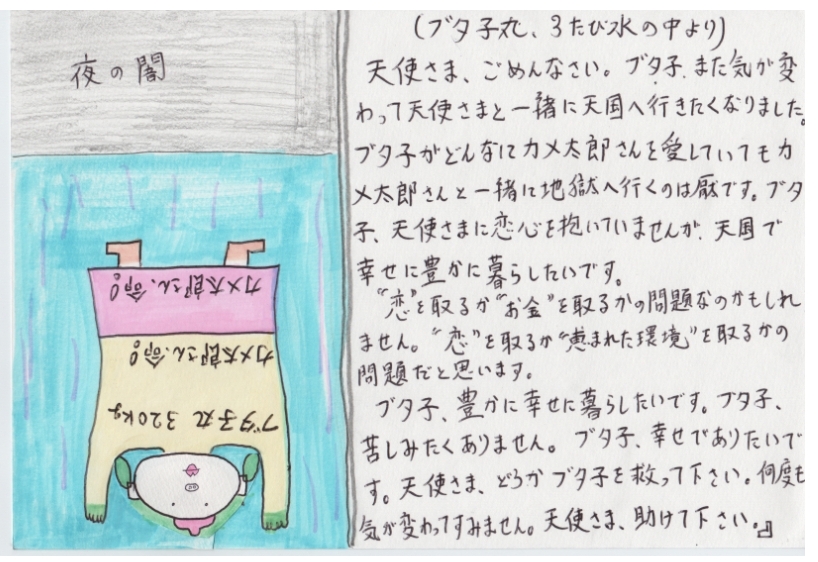 夜の闇
カメ太郎さん、命!
カメ太郎さん、命!
ブタ子丸 320kg
(ブタ子丸、3たび水の中より)
天使さま、ごめんなさい。ブタ子、また気が変
わって天使さまと一緒に天国へ行きたくなりました。
ブタ子がどんなにカメ太郎さんを愛していてもカ
メ太郎さんと一緒に地獄へ行くのは厭です。ブタ
子、天使さまに恋心を抱いていませんが、天国で
幸せに豊かに暮らしたいです。
“恋”を取るか“お金”を取るかの問題なのかもしれ
ません。“恋”を取るか“恵まれた環境”を取るかの
問題だと思います。
ブタ子、豊かに幸せに暮らしたいです。ブタ子、
苦しみたくありません。ブタ子、幸せでありたいで
す。天使さま、どうかブタ子を救って下さい。何度も
気が変わってすみません。天使さま、助けて下さい。』